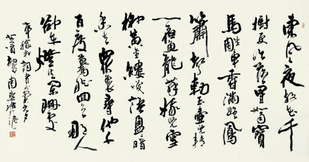 東風夜放花千
樹更吹落星如雨寶
馬雕車香滿路鳳
簫聲動玉壺光轉
一夜魚龍舞蛾兒雪
柳黃金縷笑語盈盈暗
香去眾裏尋他千
百度驀然回首那人
却在燈火闌珊處
辛棄疾詞